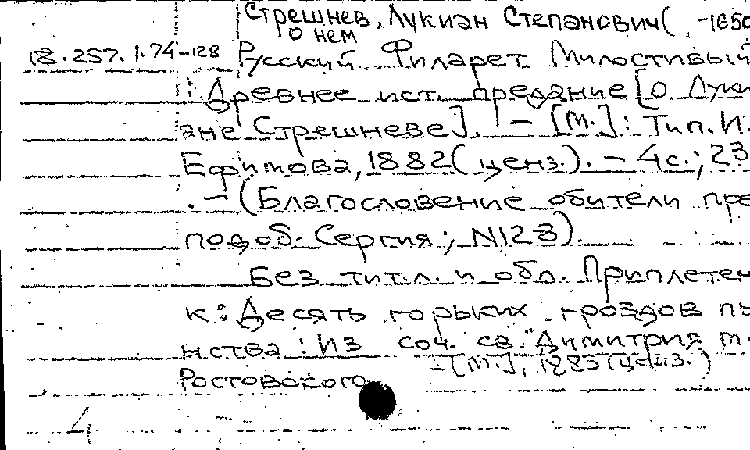 Стрешнев, Лукиан Степанович( -1650
о нем
18.257.1.74-128 Русский Филарет Милостивый
: Древнее ист. предание [о Луки
ане Стрешневе]. - [М.]: Тип. И.
Ефимова, 1882(ценз.). - 4с.; 23
. - (Благословение обители пре
подоб. Сергия; N128)
Без тит.л. и обл. Приплетен
к: Десять горьких гроздов пь
нства: Из соч. св. Димитрия м.
Ростовского - [М.], 1883(ценз.)